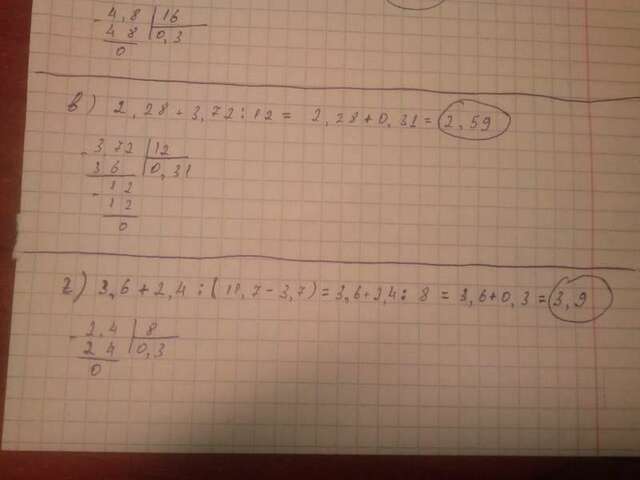 - 4,8 | 16
4 8 | 0,3
0
в) 2,28 + 3,72 : 12 = 2,28 + 0,31 = 2,59
- 3,72 | 12
3 6 | 0,31
- 12
12
0
г) 3,6 + 2,4 : (11,7 - 3,7) = 3,6 + 2,4 : 8 = 3,6 + 0,3 = 3,9
- 2,4 | 8
2 4 | 0,3
0